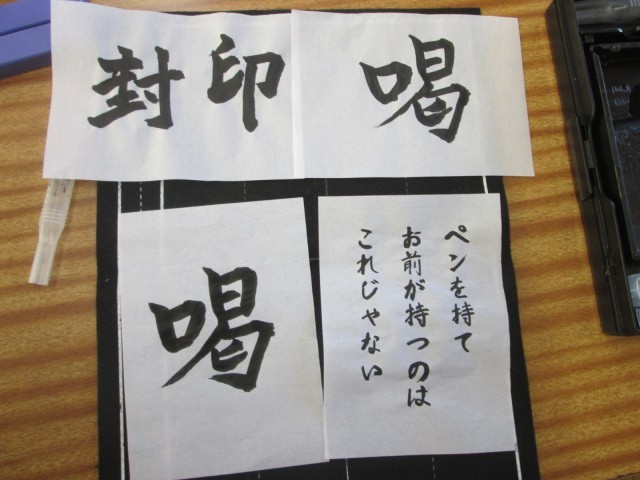 封印
喝
喝
ペンを持て
お前が持つのは
これじゃない